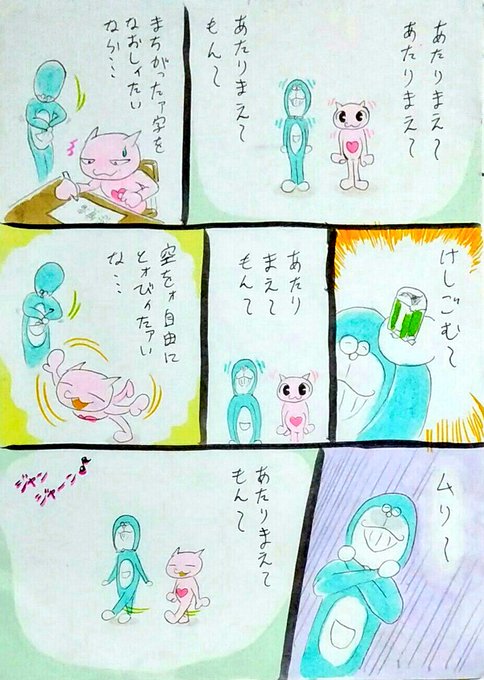 あたりまえて
あたりまえて
あたりまえて
もんて
まちがったァ字を
なおしィたい
なら…
けしごむて
あたり
まえて
もんて
空をォ自由に
とォびィたァい
な…
ムリて
あたりまえて
もんて
ジャン
ジャーン♪